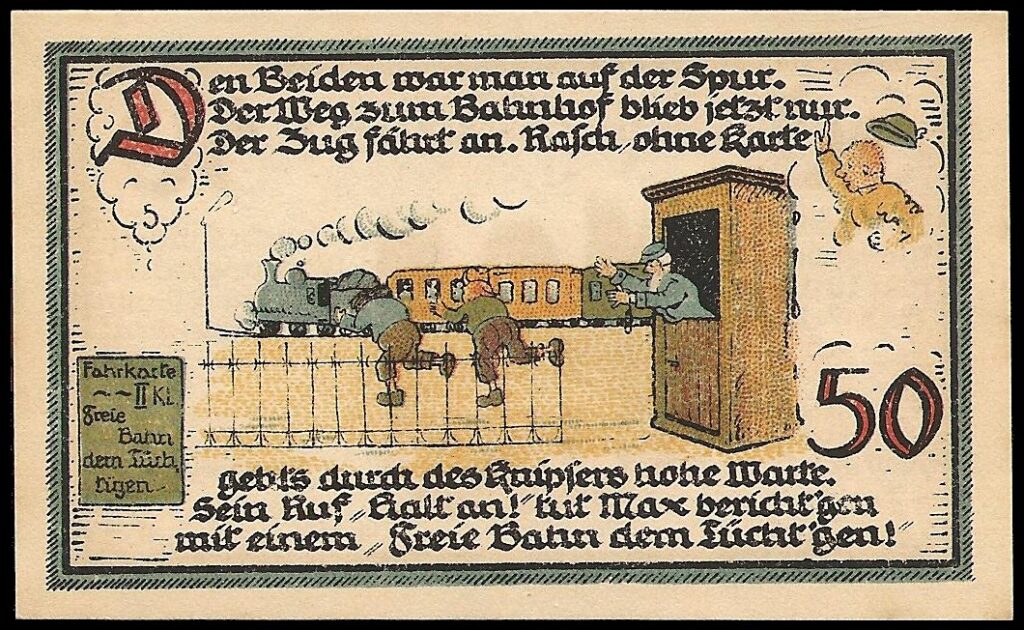 Den Beiden war man auf der Spur.
Der Weg zum Bahnhof blieb jetzt nur.
Der Zug fährt an. Rasch, ohne Karte
5
Fahrkarte
~~ II Kl.
Freie
Bahn
dem Tüch
tigen
50
geht's durch des Knipsers hohe Warte.
Sein Ruf „Halt an!" tut Max bericht'gen
mit einem „Freie Bahn dem Tücht'gen!"